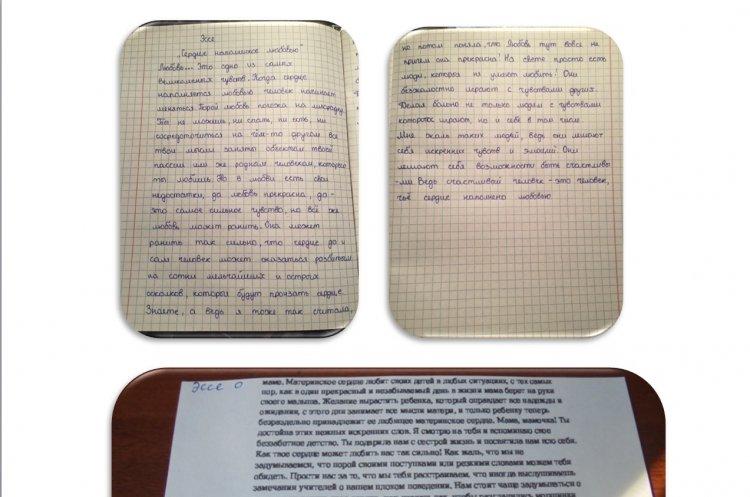 Эссе
„Сердце наполненное любовью"
Любовь... Это одно из самых
великолепных чувств. Когда сердце
наполняется любовью человек начинает
меняться. Порой любовь похожа на лихорадку.
Ты не можешь, ни спать, ни есть, ни
сосредоточиться на чём-то другом все
твои мысли заняты объектом твоей
пассии или же родным человеком, которого
ты любишь. Но в любви есть свои
недостатки, да любовь прекрасна, да -
это самое сильное чувство, но всё же
любовь может ранить. Она может
ранить так сильно, что сердце да и
сам человек может оказаться разбитым
на сотни мельчайших и острых
осколков, которые будут пронзать сердце.
Знаете, а ведь я тоже так считала,
но потом поняла, что Любовь тут вовсе не
причем она прекрасна! На свете просто есть
люди, которые не умеют любить! Они
безжалостно играют с чувствами других.
Делая больно не только людям с чувствами
которых играют, но и себе в том числе.
Мне жаль таких людей, ведь они лишают
себя искренних чувств и эмоций. Они
лишают себя возможности быть счастливы
-ми. Ведь счастливый человек - это человек,
чьё сердце наполнено любовью
Эссе о
маме. Материнское сердце любит своих детей в любых ситуациях, с тех самых
пор, как в один прекрасный и незабываемый день в жизни мама берет на руки
своего малыша. Желание вырастить ребенка, который оправдает все надежды и
ожидания, с этого дня занимает все мысли матери, и только ребенку теперь
безраздельно принадлежит ее любящее материнское сердце. Мама, мамочка! Ты
достойна этих нежных искренних слов. Я смотрю на тебя и вспоминаю свое
беззаботное детство. Ты подарила нам с сестрой жизнь и посвятила нам всю себя.
Как твое сердце может любить нас так сильно! Как жаль, что мы не
задумываемся, что порой своими поступками или резкими словами можем тебя
обидеть. Прости нас за то, что мы тебя расстраиваем, что иногда выслушиваешь
замечания учителей о нашем плохом поведении. Нам стоит чаще задумываться о